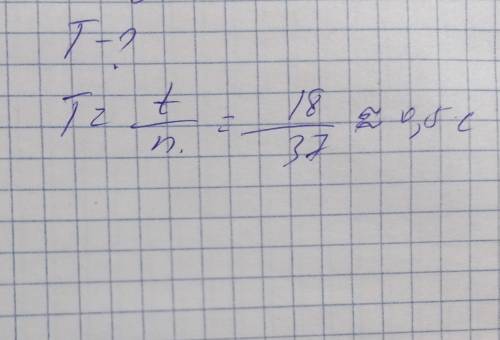 T - ?
T = t/n. = 18/37 ≈ 0,5 с